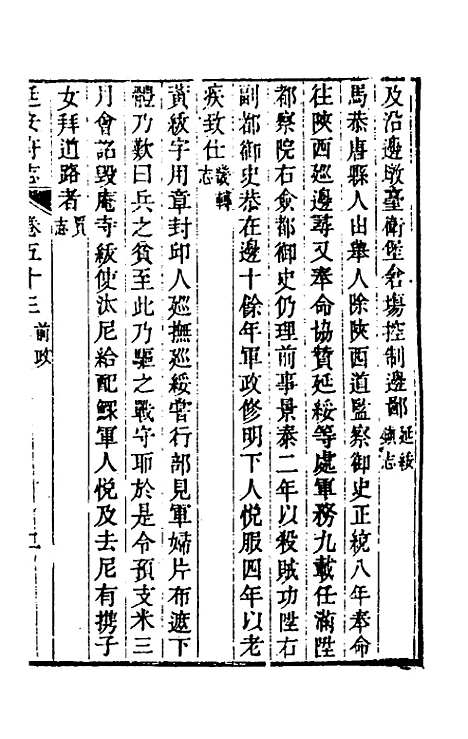 及沿邊墩臺衛堡台塲控制邊鄙延綏鎮志
馬恭唐縣人由舉人除陝西道監察御史正統八年奉命
往陝西廵邊尋又奉命協贊延綏等處軍務九載任滿陞
都察院右僉都御史仍理前事景泰二年以殺賊功陞右
副都御史恭在邊十餘年軍政修明下人悅服四年以老
疾致仕志
黃紱字用章封印人廵撫廵綏嘗行部見軍婦片布遮下
體乃歎曰兵之貧至此乃驅之戰守耶於是令預支米三
月會詔毀庵寺紱使汰尼給配鰥軍人悅及去尼有携子
女拜道路者賈志
延安府志 卷五十三 前政